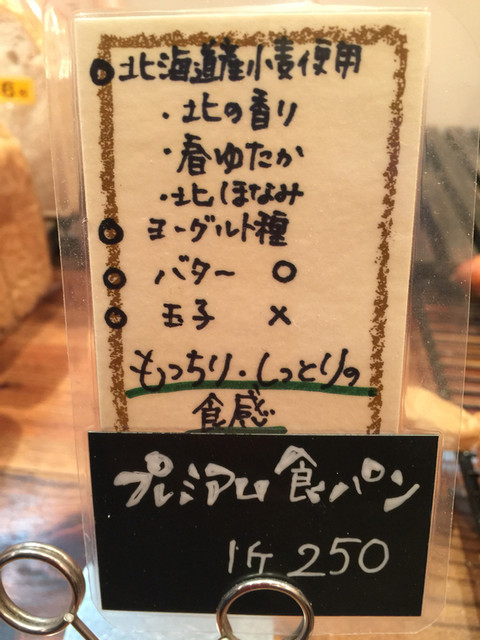 ○北海道産小麦使用
・北の香り
・春ゆたか
・北ほなみ
○ヨーグルト種
○バター ○
○玉子 ×
もっちり・しっとりの
食感
プレミアム食パン
1ケ 250